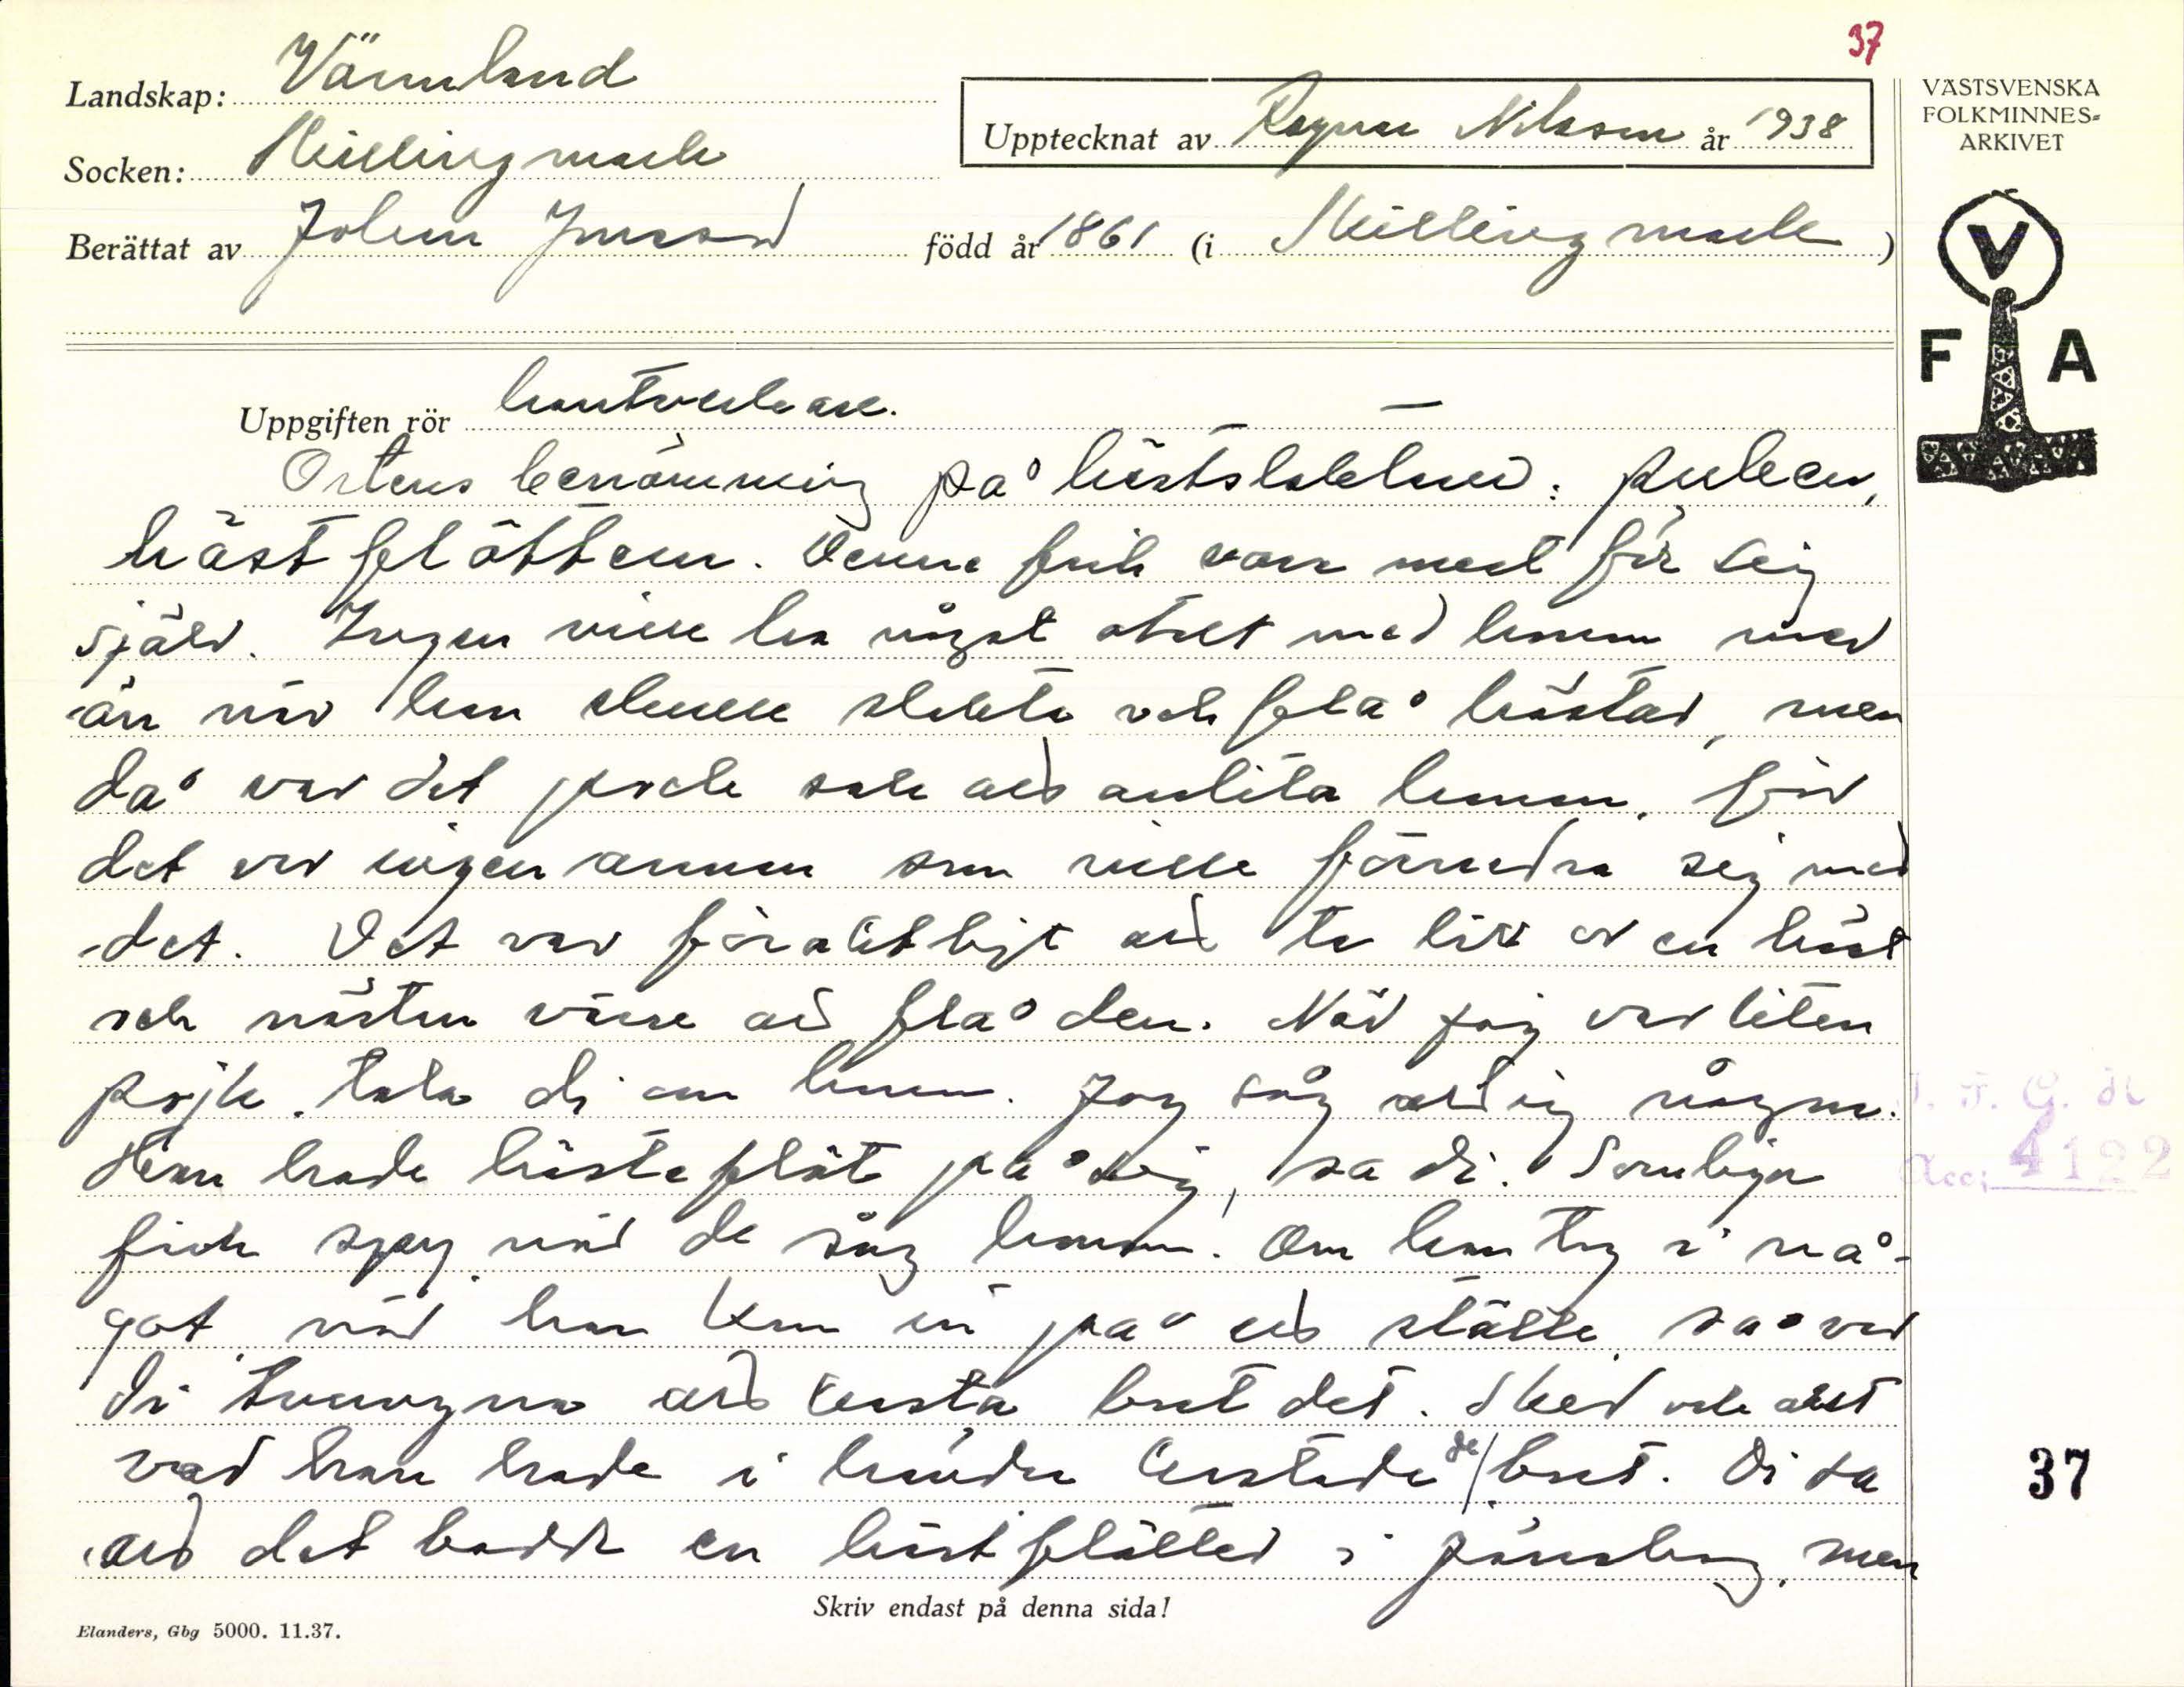 37
Landskap: Värmland
Socken: Skillingmark
Upptecknat av Ragnar Nilsson år 1938
Berättat av Johan Jonsson född år 1861 (i Skillingmark)
VÄSTSVENSKA
FOLKMINNES-
ARKIVET
V
F A
Uppgiften rör hantverkare.
Ortens benämning på hästslaktaren: rackaren,
hästflåttern. Denne fick vara mest för sig
själv. Ingen ville ha något otalt med honom mer
än när han skulle slakta och flå hästar, men
då var det prick sak att anlita honom, för
det var ingen annan som ville förnedra sig med
det. Det var föraktligt att ta livet av en häst
och nästan värre att flå den. När jag var liten
pojke tala di om honom. Jag såg aldrig någon.
Han hade hästeflåt på sig, sa di. Somliga
fick spy när de såg honom. Om han tog i nå-
got när han kom in på ett ställe, så var
di tvungna att kasta bort det. Sked och allt
vad han hade i händer kastade de bort. Di sa
att det bodde en hästflåtter i Järnskog, men
I. F. G. H
Acc: 4122
37
Skriv endast på denna sida!
Elanders, Gbg 5000. 11.37.